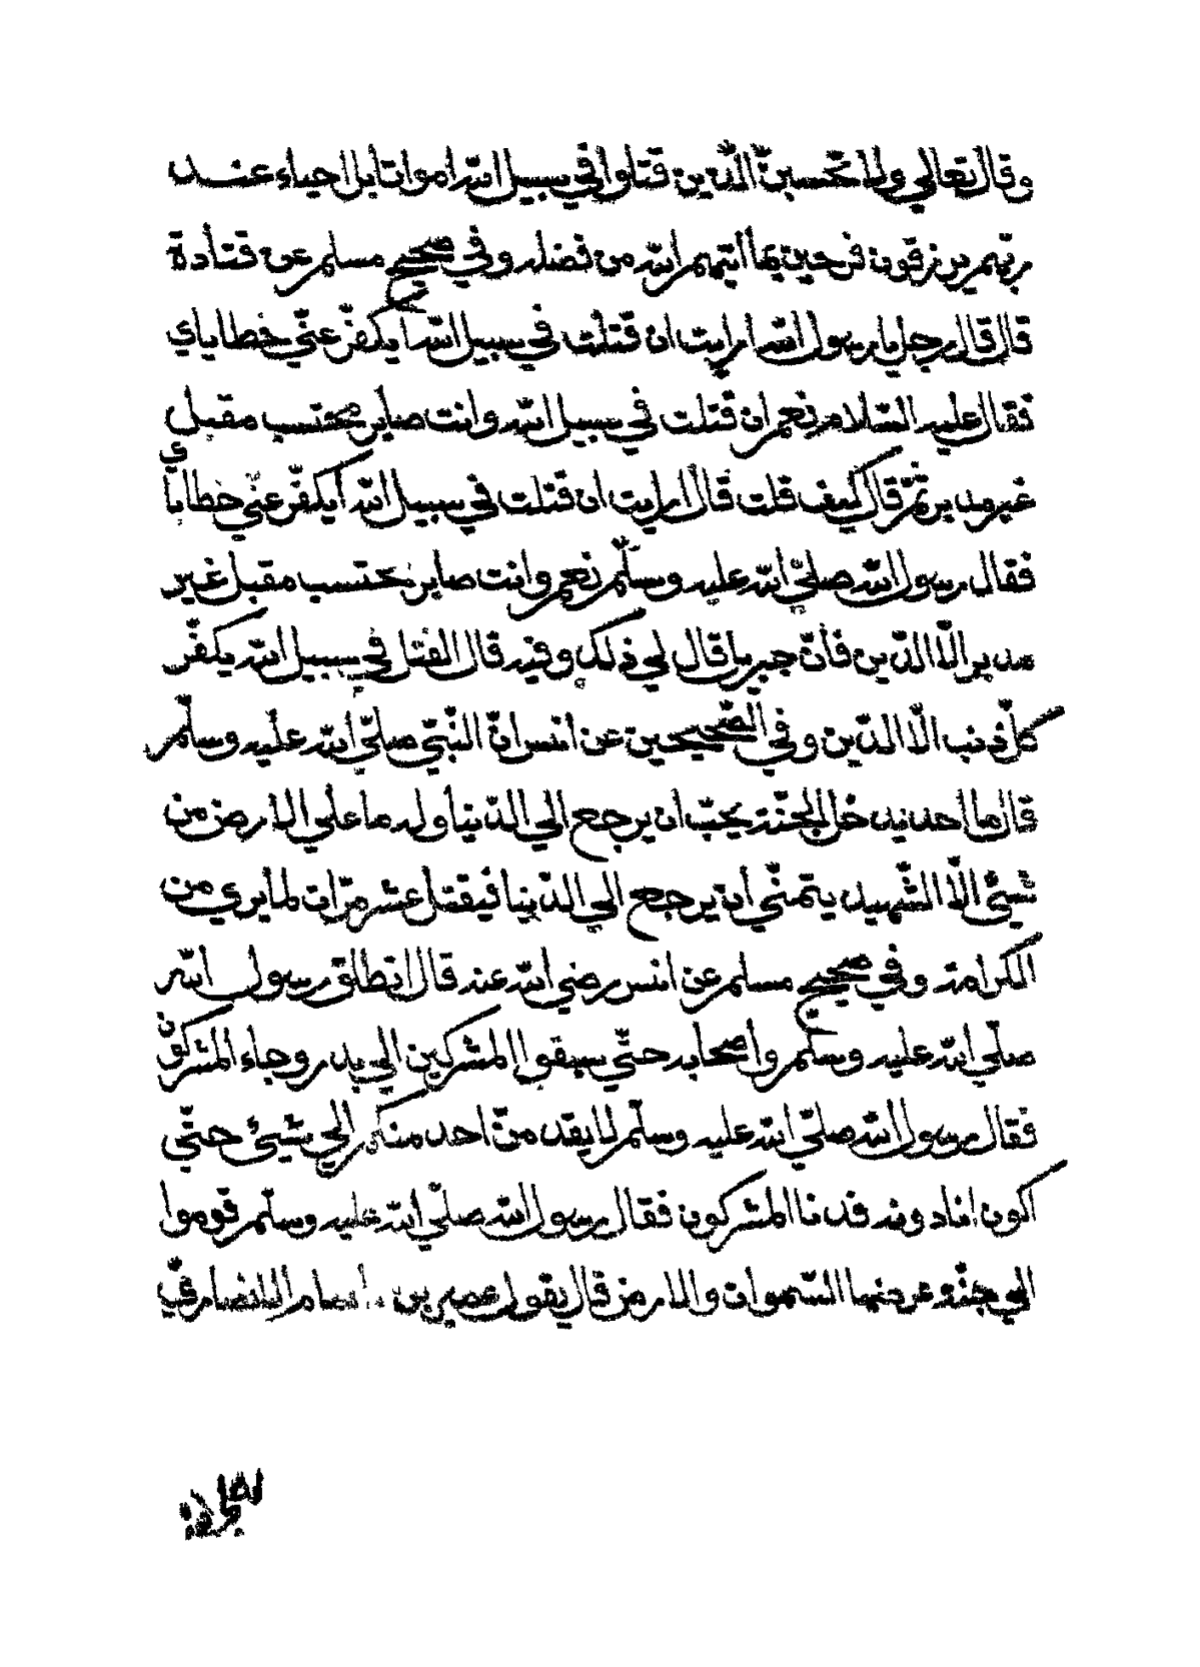 وقال تعالي ولا تحسبنّ الّذين قتلوا في سبيل اللّه أمواتا بل احياء عند
ربّهم يرزقون فرحين بما أتيهم اللّه من فضله وفي صحيح مسلم عن قتادة
قال قال رجل يا رسول اللّه ارايت ان قتلت في سبيل اللّه ايكفّر عنّي خطاياي
فقال عليه السّلام نعم ان قتلت في سبيل اللّه وانت صابر محتسب مقبل
غير مدبر ثمّ قال كيف قلت قال ارايت ان قتلت في سبيل اللّه أيكفّر عنّي خطاياي
فقال رسول اللّه صلّي اللّه عليه وسلّم نعم وانت صابر محتسب مقبل غير
مدبر الّا الدّين فأنّ جبريل قال لي ذلك وفيه قال القتل في سبيل اللّه يكفّر
كلّ ذنب الّا الدّين وفي الصّحيحين عن انس انّ النّبيّ صلّي اللّه عليه وسلّم
قال ما احد يدخل الجنّة يحبّ ان يرجع الي الدّنيا وله ما علي الارض من
شيئ الّا الشّهيد يتمنّي أن يرجع الي الدّنيا فيقتل عشر مرّات لما يري من
الكرامة وفي صحيح مسلم عن انس رضي اللّه عنه قال انطلق رسول اللّه
صلّي اللّه عليه وسلّم وأصحابه حتّي سبقوا المشركين الي بدر وجاء المشركون
فقال رسول اللّه صلّي اللّه عليه وسلّم لا يقدمنّ احد منكم الي شيئ حتّي
اكون انا دونه فدنا المشركون فقال رسول اللّه صلّي اللّه عليه وسلّم قوموا
الي جنّة عرضها السّموات والارض قال يقول عمير بن الانصاريّ